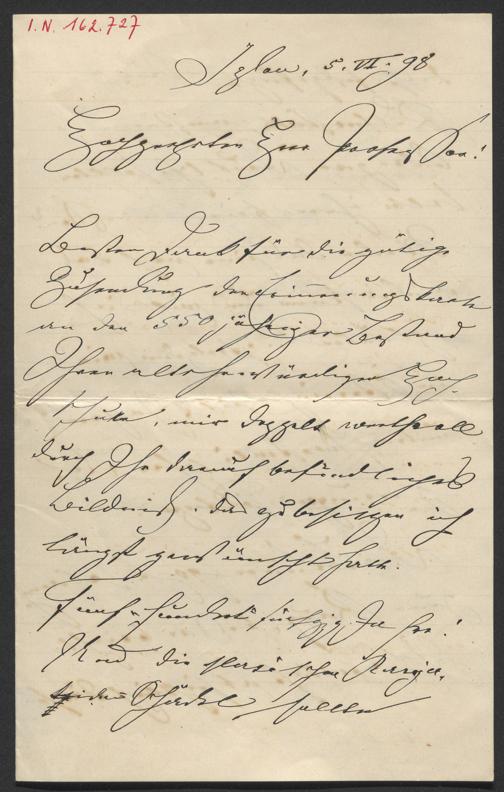 I.N. 162.727
Iglau, 5. VI. 98
Hochgeehrter Herr Professor!
Besten Dank für die gütige
Zusendung der Erinnerungskarte
an den 550 jährigen Bestand
Ihrer altehrwürdigen Hoch-
schule, mir doppelt werthvoll
durch Ihr darauf befindliches
Bildniß, das zu besitzen ich
längst gewünscht hatte.
Fünfhundert fünfzig Jahre!
Und die slavischen
Schädel sollten